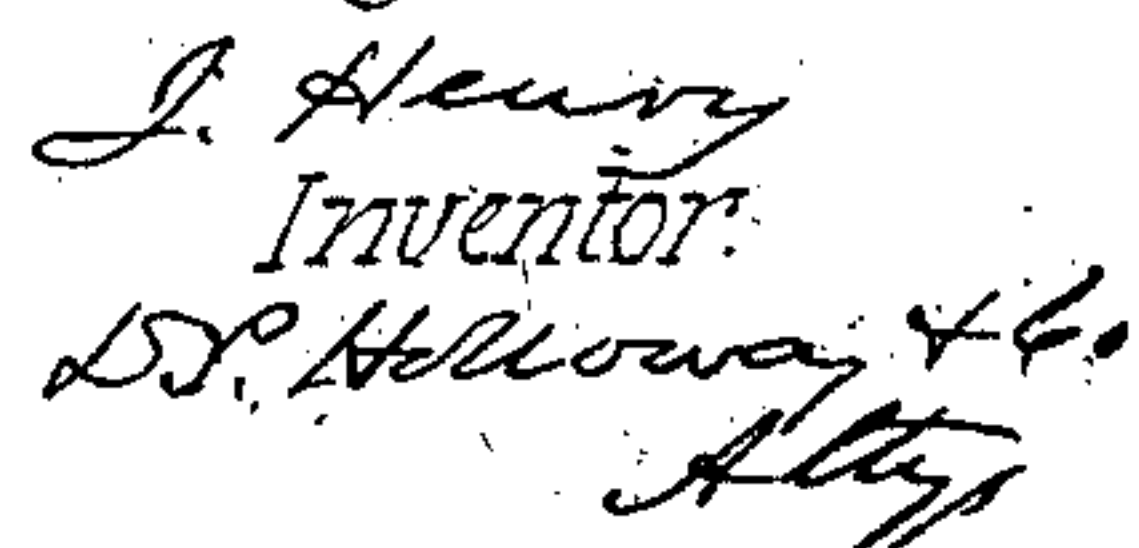 J. Henry
Inventor.
D. P. Holloway & Co.
Attys